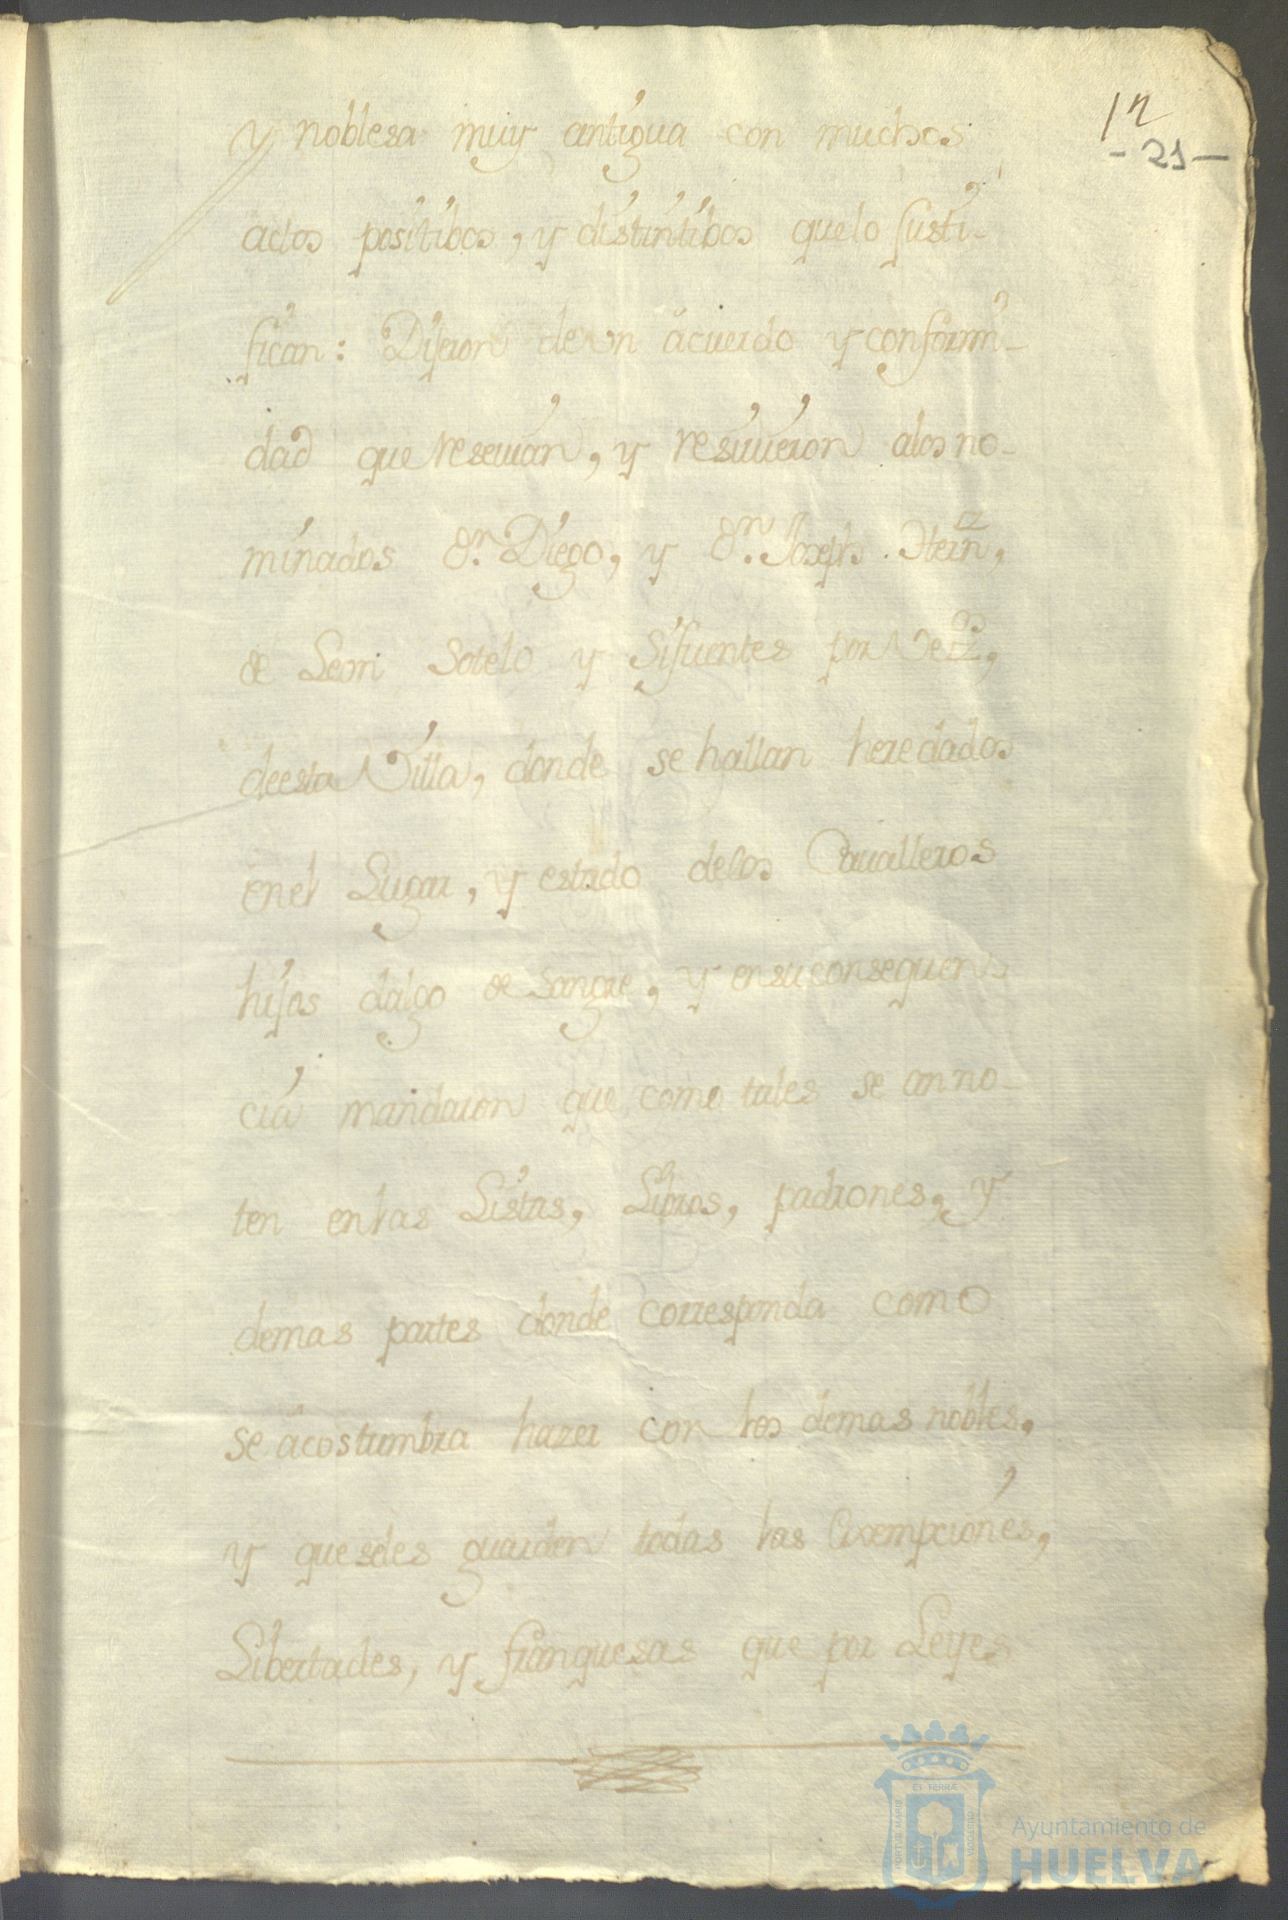 12
- 21 -
y noblesa muy antigua con muchos
actos positibos, y distintibos quelo Justi-
fican: Dijeron de un acuerdo y conformi-
dad que reseuian, y resiuieron alos no-
minados Dn. Diego, y Dn. Joseph Hernz,
de Leon Sotelo y Sifuentes por Vezos,
deesta Villa, donde se hallan heredados
enel Lugar, y estado delos Caualleros
hijos dalgo de Sangre, y ensuconsequen-
cia mandaron que como tales se anno-
ten enlas Listas, Libros, padrones, y
demas partes donde corresponda como
se acostumbra hazer con los demas nobles,
y queseles guarden todas las Exempciones,
Libertades, y franquesas que por Leyes
PORTUS MARIS
ET TERRAE
CUSTODIA
Ayuntamiento de
HUELVA